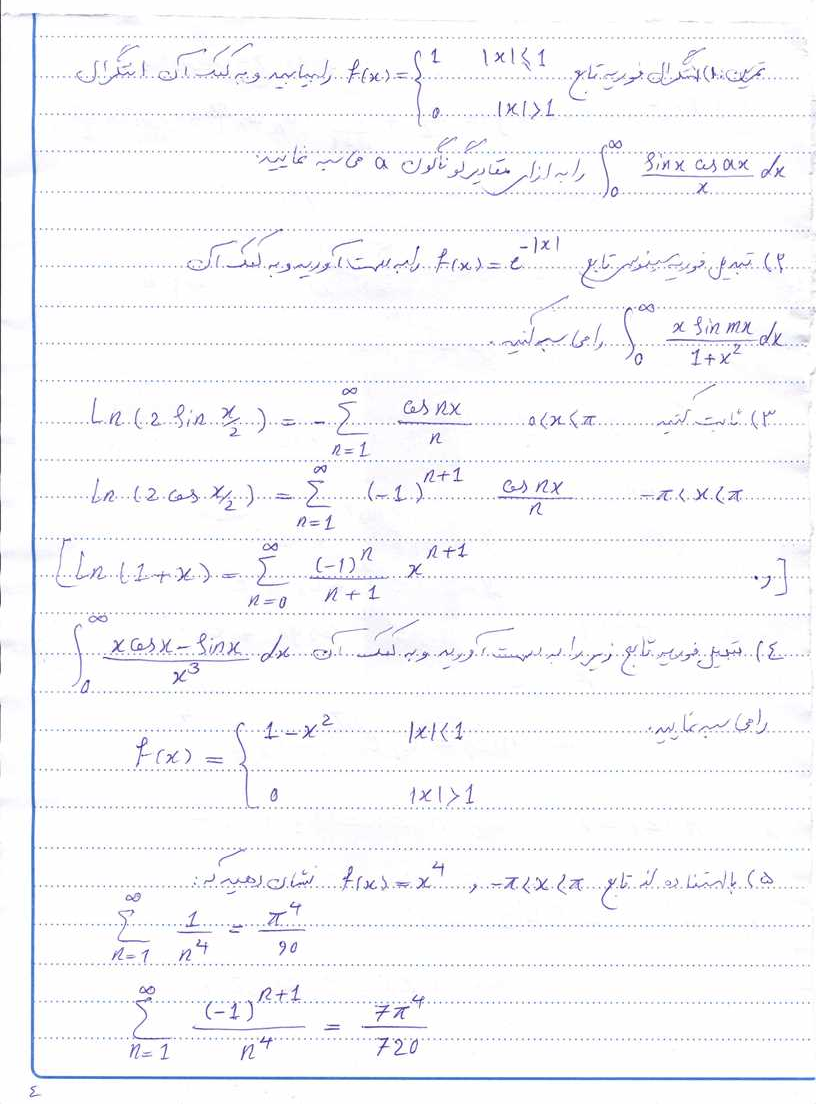 تمرین: ۱) انتگرال فوریه تابع f(x) = { 1 |x| ≤ 1 , 0 |x| > 1 را بیابید و به کمک آن انتگرال
∫_0^∞ (sin x cos ax)/x dx را به ازای مقادیر گوناگون a محاسبه نمایید.
۲) تبدیل فوریه سینوسی تابع f(x) = e^{-|x|} را بدست آورید و به کمک آن
∫_0^∞ (x sin mx)/(1+x^2) dx را محاسبه کنید.
۳) ثابت کنید 0<x<π Ln(2 sin x/2) = - ∑_{n=1}^∞ (cos nx)/n
Ln(2 cos x/2) = ∑_{n=1}^∞ (-1)^{n+1} (cos nx)/n -π<x<π
[Ln(1+x) = ∑_{n=0}^∞ ((-1)^n)/(n+1) x^{n+1} ]
٤) تبدیل فوریه تابع زیر را به دست آورید و به کمک آن ∫_0^∞ (x cos x - sin x)/x^3 dx
را محاسبه نمایید.
f(x) = { 1-x^2 |x|<1 , 0 |x|>1
۵) با استفاده از تابع f(x) = x^4 , -π<x<π نشان دهید که:
∑_{n=1}^∞ 1/n^4 = π^4/90
∑_{n=1}^∞ ((-1)^{n+1})/n^4 = 7π^4/720
٤